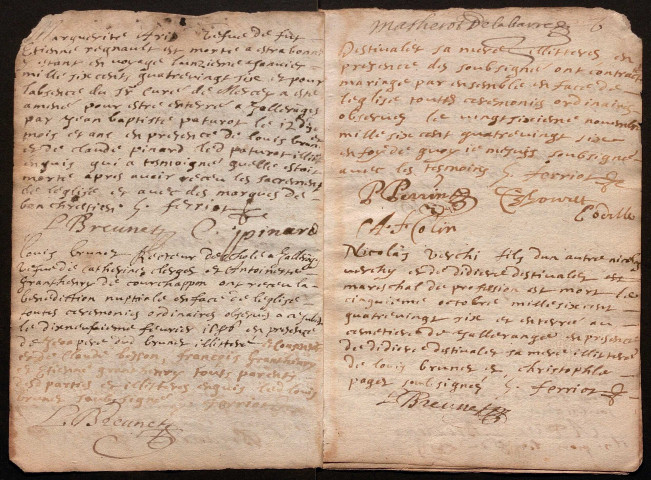 Marguerite vefve de fut
Estienne regnault est morte a estrabonne
estant en voyage lunzieme janvier
mille six cents quatre vingt six et pour
labsence du Sr curé de Mercey a esté
amené pour estre enterré a Sallerange
par Jean baptiste paturot le 12 dud
mois et an en presence de louis brun
et de claude pinard led paturot illitere
enquis qui a tesmoigné quelle estoit
morte apres avoir receu les sacrements
de leglise et avec des marques de
bon chrestien ferriot
L Breunet C pinard
Louis brunet Recteur descholle a Sallerange
vefve de catherine clerget et Antoinette
Granthenry de courchappon ont receu la
benediction nuptiale en face de leglise
toutes ceremonies ordinaires
le dixneufvieme febvrier en presence
de Jean pierre dud brunet illittere
et de Claude boyson, françois Granthenry
et Etienne granthenry touts parents
des parties et illitteres enquis led louis
brunet soubsigné ferriot
L. Breunet
Matherot Delabarre 6
Destivalet sa mere illitteres en
presence des soubsigné ont contracté
mariage par ensemble en face de
leglise touttes ceremonies ordinaires
observees le vingt sixieme novembre
mille six cent quatre vingt six
en foy de quoy je me suis soubsigné
avec les tesmoins ferriot
P Perrin
A. f. Colin
Nicolas verchy fils dun autre nicolas
verchy et de didiere destivalet est
mareschal de profession est mort le
cinquieme octobre mille six cent
quatre vingt six et enterré au
cemetiere de Sallerange en presence
de didiere destivalet sa mere illittere
de louis brunet et christophle
paget soubsignes ferriot
L Breunet